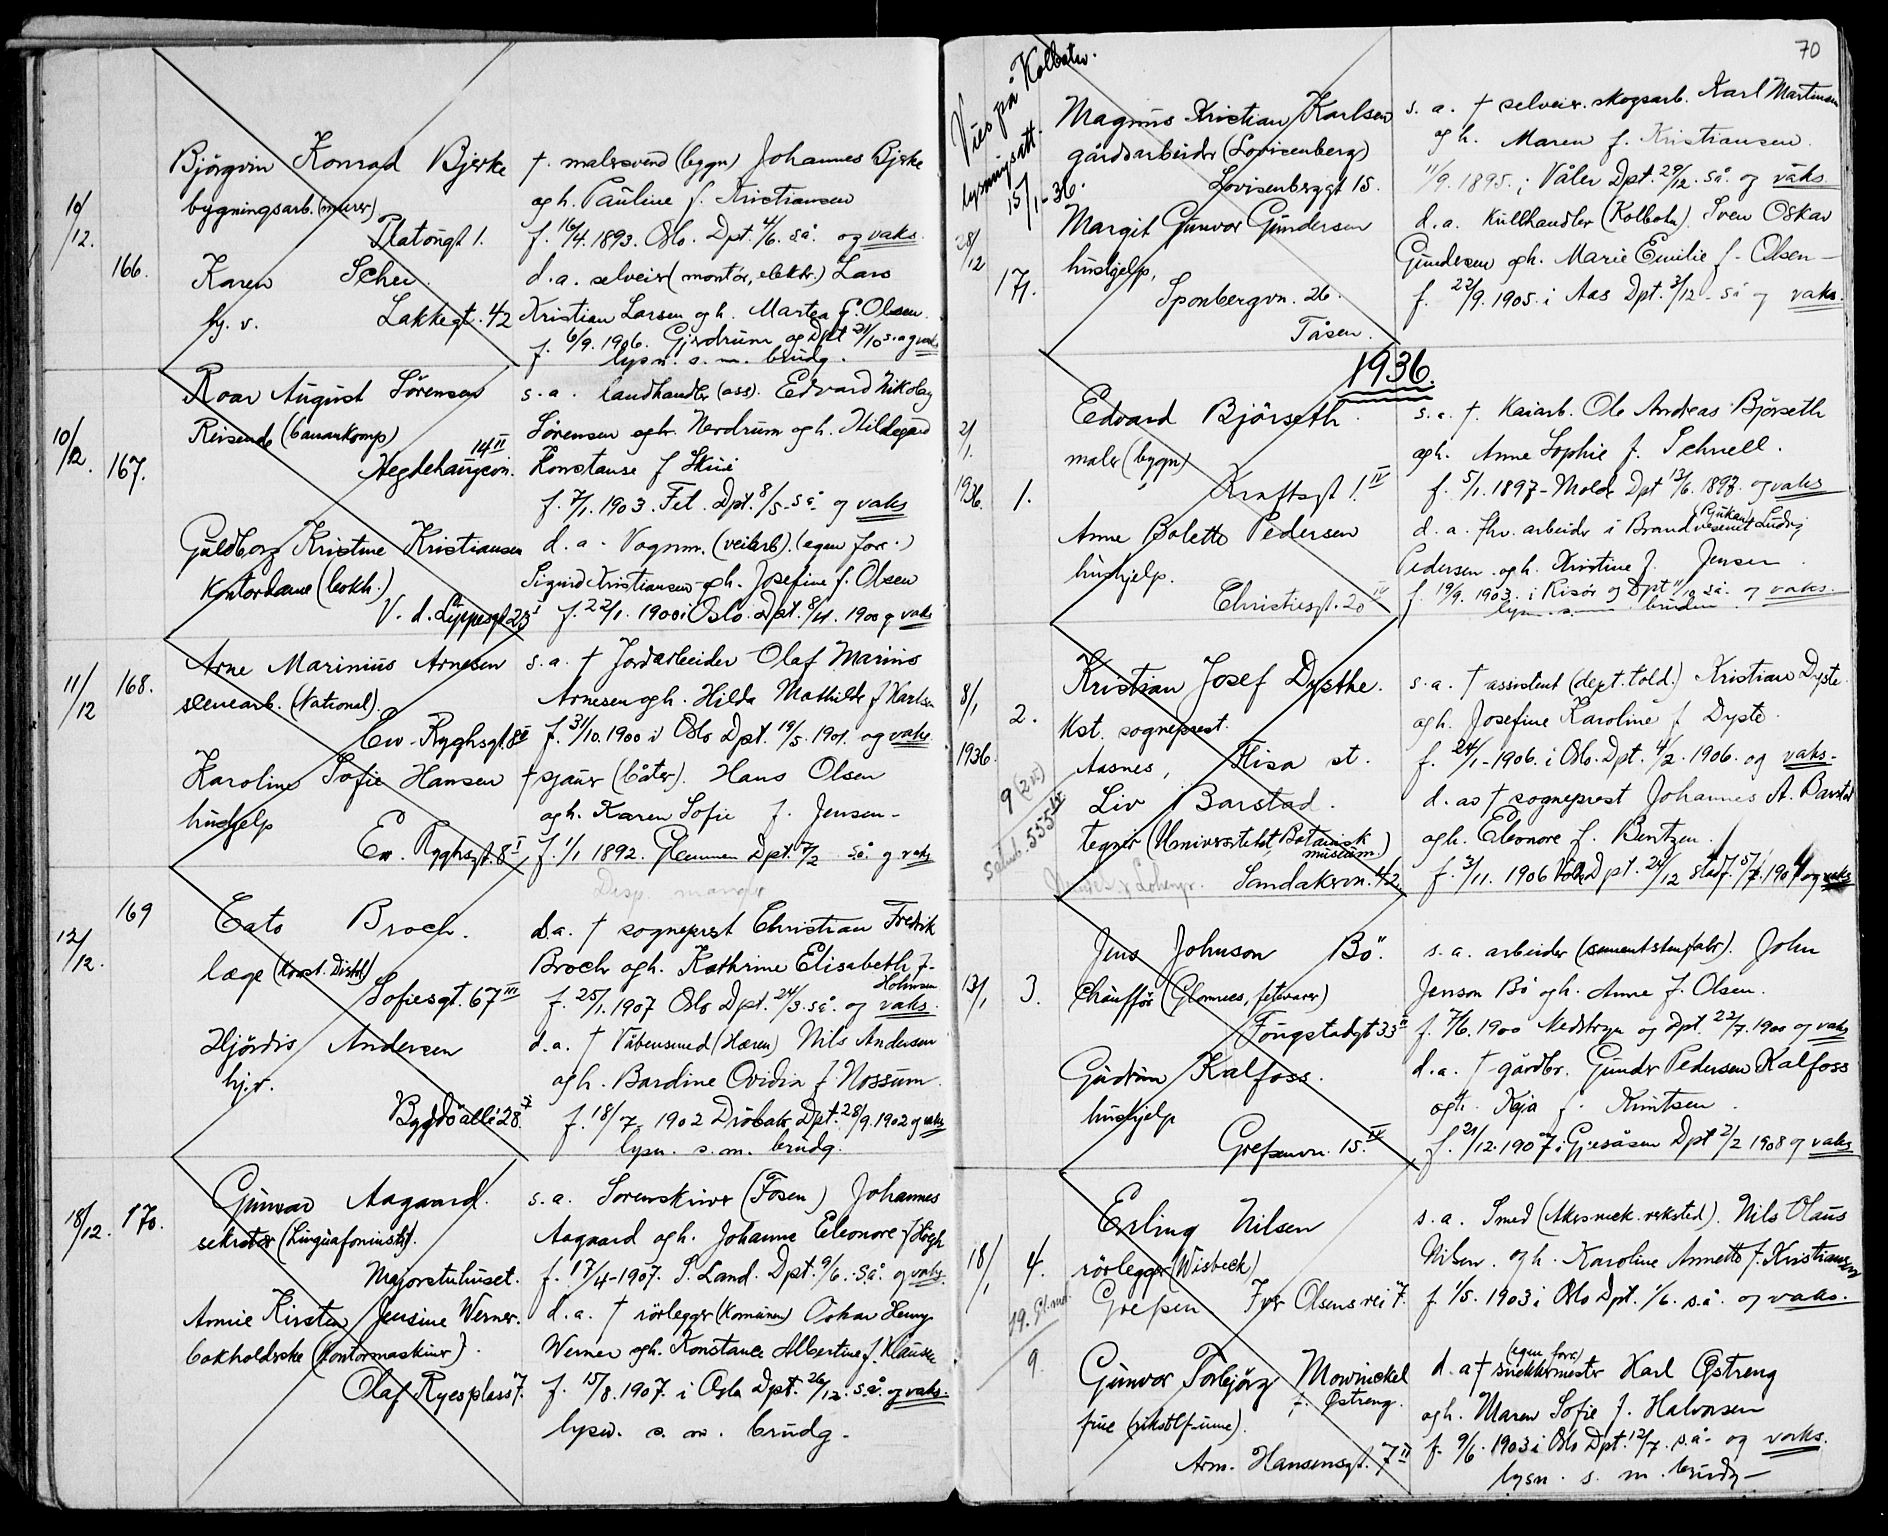 10/12.
166.
Björgvin Konrad Bjerke
bygningsarb. (murer)
Platougt 1.
Karen Scheu.
hj. v. Lakkegt. 42
†. malersvend (bygn) Johannes Bjerke
og h. Pauline f. Kristiansen
f. 16/4. 1893. Oslo. Dpt. 4/6. så. og vaks.
d. a. selveier (montör, elektr.) Lars
Kristian Larsen og h. Martea f. Olsen.
f. 6/9. 1906. Gjerdrum og Dpt 21/10 s.a og vaks
lysn. s. m. brudg.
10/12.
167.
Roar August Sörensen
Reisende (banankomp)
14 II
Hegdehaugsvn.
Guldborg Kristine Kristiansen
Kontordame (bokh.)
V. d. Lippesgt 23 I
s. a. landhandler (ass). Edvard Nikolay
Sörensen og h. Nerdrum og h. Hildegard
Konstanse f Skui
f. 7/1. 1903. Fet. Dpt. 8/5. så. og vaks
d. a. Vognm. (veiarb). (egen forr.)
Sigurd Kristiansen og h. Josefine f. Olsen
f. 22/1. 1900 i Oslo. Dpt. 8/4. 1900 og vaks
11/12
168.
Arne Marinius Arnesen
scenearb. (National).
Ew. Ryghsgt. 8 I
Karoline Sofie Hansen
hushjelp
Ew. Ryghsgt. 8 I
s. a. † Jordarbeider Olaf Marius
Arnesen og h. Hilda Mathilde f Karlsen
f. 31/10. 1900 i Oslo Dpt. 19/5. 1901. og vaks.
† sjauer (båter). Hans Olsen
og h. Karen Sofie f. Jensen -
f. 1/1 1892. Glemmen Dpt. 7/2 så. og vaks
Disp. mangler
12/12.
169
Cato Broch.
læge (konst. Distrl)
Sofiesgt. 67 III
Hjördis Andersen
hj. v.
Bygdö allé 28.
s. a. † sogneprest Christian Fredrik
Broch og h. Kathrine Elisabeth f.
Holmsen
f. 25/1. 1907 Oslo Dpt. 24/3. så. og vaks.
d. a. † Våbensmed (Hæren) Nils Andersen
og h. Bardine Ovidia f. Nossum.
f. 18/7. 1902 Dröbak Dpt. 28/9. 1902 og vaks
lysn. s. m. brudg.
18/12.
170.
Gunvar Aagaard.
sekretær (Linguafoninstit).
Majorstuhuset.
Annie Kirsten Jensine Werner.
bokholderske (kontormaskiner).
Olaf Ryesplass 7.
s. a. Sorenskriver (Fosen) Johannes
Aagaard og h. Johanne Eleonore f. Högh
f. 17/4 - 1907. S. Land. Dpt. 9/6. s.å. og vaks.
d. a. † rörlegger (komunen) Oskar Henry
Werner og h. Konstance Albertine f. Klausen
f. 15/8. 1907. i Oslo Dpt. 26/12. så. og vaks.
lysn. s. m. brudg -
70
Vies på Kolbotn.
lysningsatt.
15/1 - 36.
28/12
171.
Magnus Kristian Karlsen
gårdsarbeider (Lovisenberg)
Lovisenberggt 15.
Margit Gunvor Gundersen
hushjelp,
Sponbergvn. 26.
Tåsen.
s. a. † selveier. skogsarb. Karl Martinsen
og h. Maren f. Kristiansen.
11/9. 1895. i Våler Dpt. 29/12. så. og vaks.
d. a. kullhandler (Kolbotn) Sven Oskar
Gundersen og h. Marie Emilie f. Olsen -
f. 22/9. 1905. i Aas Dpt. 3/12 - så og vaks.
1936.
2/1.
1936.
1.
Edvard Björseth
maler (bygn)
Kraftsgt 1. IV
Anne Bolette Pedersen
hushjelp.
Christiesgt. 20 IV
s. a. †. Kaiarb. Ole Andreas Björseth
og h. Anne Sophie f. Schnell.
f. 5/1. 1897 - Molde Dpt 13/6. 1897. og vaks
d. a. fhv. arbeider i Brandvesenet (Rjukan) Ludvig
Pedersen og h. Kristine f. Jensen.
f. 19/9. 1903. i Risör og Dpt 11/10 så. og vaks.
lysn. s. m. bruden
8/1
1936.
2.
Kristian Josef Dysthe.
Kst. sogneprest.
Aasnes, Flisa st.
Liv Barstad.
tegner (Universitetet Botanisk
museum)
Sandakervn. 42
9 (2 nr)
Salmb. 555 IV
s. a. † assistent (dept. told.) Kristian Dyste.
og h. Josefine Karoline f Dyste.
f. 24/1 - 1906. i Oslo. Dpt. 4/2. 1906. og vaks.
d. av † sogneprest Johannes A. Barstad
og h. Eleonore f. Bentzen.
f. 3/11. 1906 Dpt. 24/12
13/1
3.
Jens Johnson Bö.
Chaufför (Glomnes, fetevarer)
Fougstadgt 33 II
Gudrun Kalfoss.
hushjelp
Grefsenvn. 15. IV
s. a. arbeider (sementstenfabr). John
Jenson Bö og h. Anne f. Olsen.
f. 7/6. 1900 Nedstryn og Dpt. 22/7. 1900 og vaks
d. a. † gårdbr. Gunder Pedersen Kalfoss
og h. Kaja f. Knutsen.
f. 21/12. 1907 i Gjesåsen Dpt 2/2 1908 og vaks
18/1
4.
19. Gl. md.
9.
Erling Nilsen
rörlegger (Wisbeck)
Grefsen Iver Olsens vei 7.
Gunvor Torbjörg Mowinckel
f. Östreng.
frue (rikstelf-inne).
Arm. Hansensgt. 7 II
s. a. Smed (Akers mek. verksted). Nils Olaus
Nilsen. og h. Karoline Annette f. Kristiansen
f. 1/5. 1903 i Oslo Dpt. 1/6. s.å. og vaks.
(egen forr)
d. a † snekkermester Karl Østreng
og h. Maren Sofie f. Halvorsen
f. 9/6. 1903 i Oslo Dpt. 12/7. s.å. og vaks.
lysn. s. m. brudg -